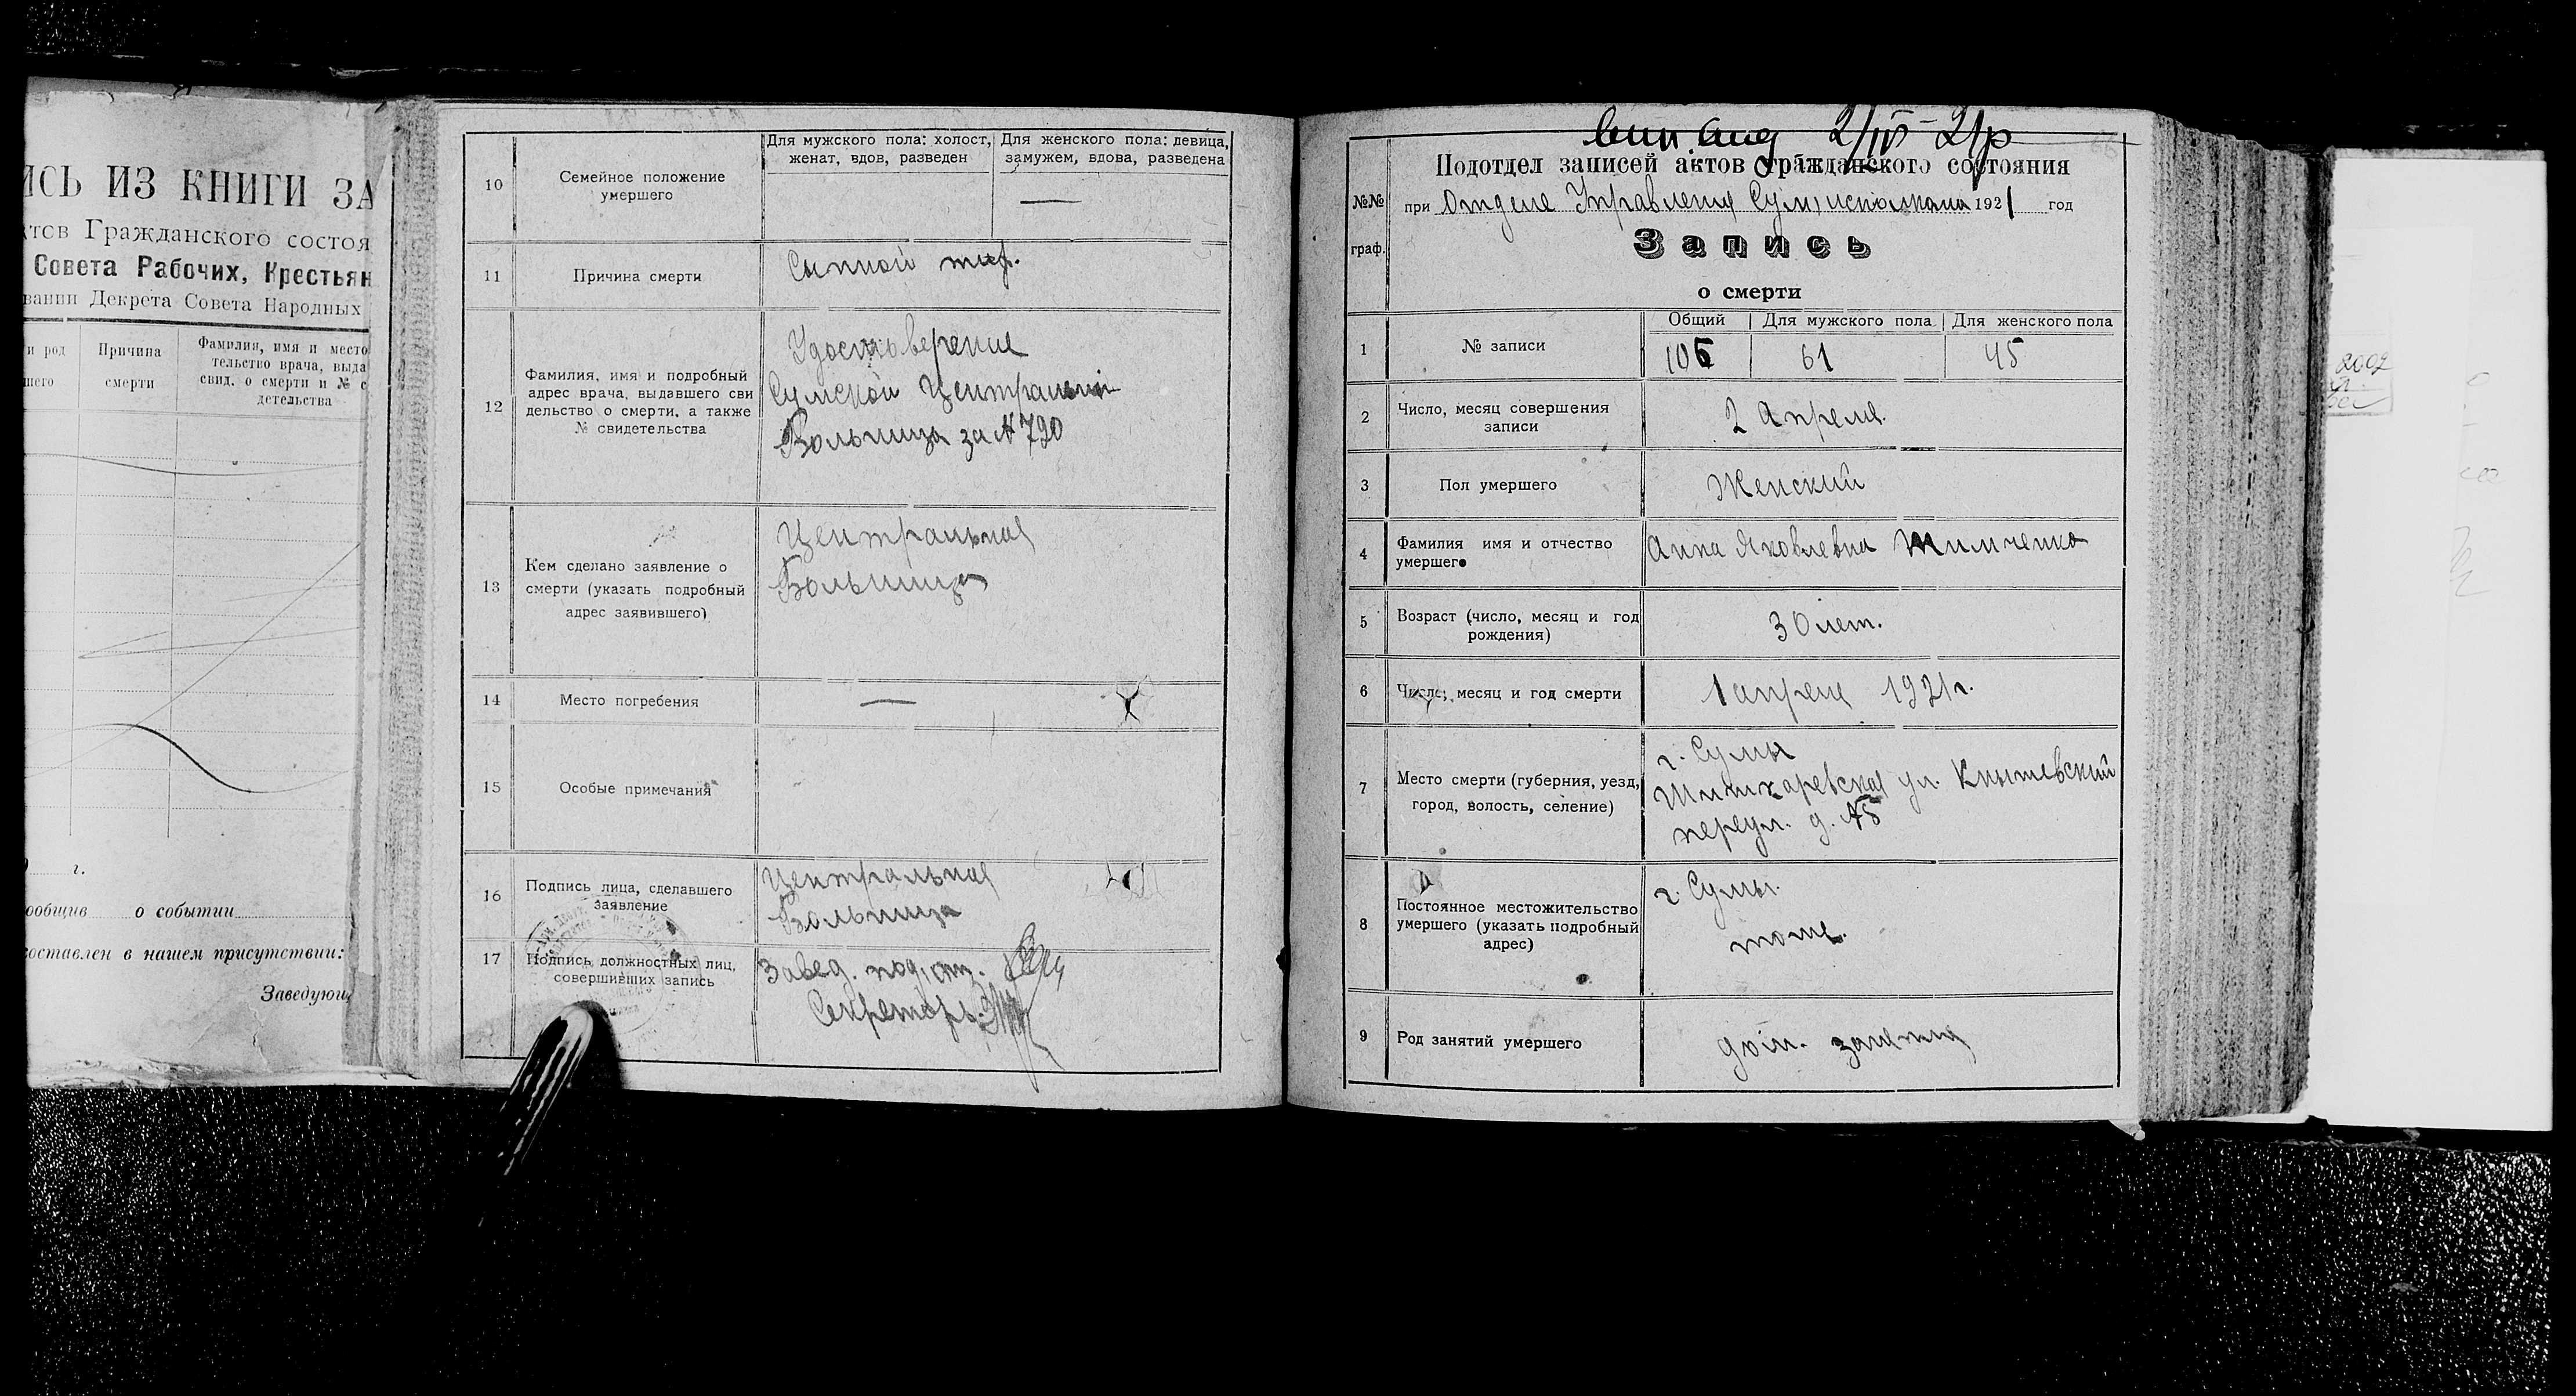 ИСЬ ИЗ КНИГИ ЗА
тов Гражданского состоя
Совета Рабочих, Крестьян
вании Декрета Совета Народных
и род
шего
Причина
смерти
Фамилия, имя и место
тельство врача, выда
свид. о смерти и № с
детельства
г.
ообщив о событии
оставлен в нашем присутствии:
Заведующ
10
Семейное положение
умершего
Для мужского пола: холост,
женат, вдов, разведен
Для женского пола: девица,
замужем, вдова, разведена
—
11
Причина смерти
Сыпной тиф.
12
Фамилия, имя и подробный
адрес врача, выдавшего сви
дельство о смерти, а также
№ свидетельства
Удостоверение
Сумской Центральной
Больница за № 790
13
Кем сделано заявление о
смерти (указать подробный
адрес заявившего)
Центральная
Больница
14
Место погребения
—
15
Особые примечания
16
Подпись лица, сделавшего
заявление
Центральная
Больница
17
Подпись должностных лиц,
совершивших запись
Завед. под,от.
Секретарь
2/IV-21р
Подотдел записей актов гражданского состояния
№№
граф.
при Отделе Управления Сум,исполкома 1921 год
Запись
о смерти
1
№ записи
Общий
Для мужского пола
Для женского пола
106
61
45
2
Число, месяц совершения
записи
2 Апреля.
3
Пол умершего
Женский
4
Фамилия имя и отчество
умершего
Анна Яковлевна Тимченко
5
Возраст (число, месяц и год
рождения)
30 лет.
6
Число, месяц и год смерти
1 апреля 1921 г.
7
Место смерти (губерния, уезд,
город, волость, селение)
г. Сумы
ул.
переул. д. №5
8
Постоянное местожительство
умершего (указать подробный
адрес)
г. Сумы.
тоже.
9
Род занятий умершего
дом. занятия
2002